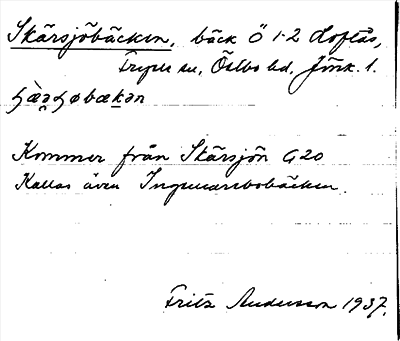 Skärsjöbäcken, bäck Ö 1-2 Loftås,
Fryele sn, Östbo hd, Jönk. l.
Kommer från Skärsjön G20
Kallas även Ingemarsbobäcken.
Fritz Andersson 1937.